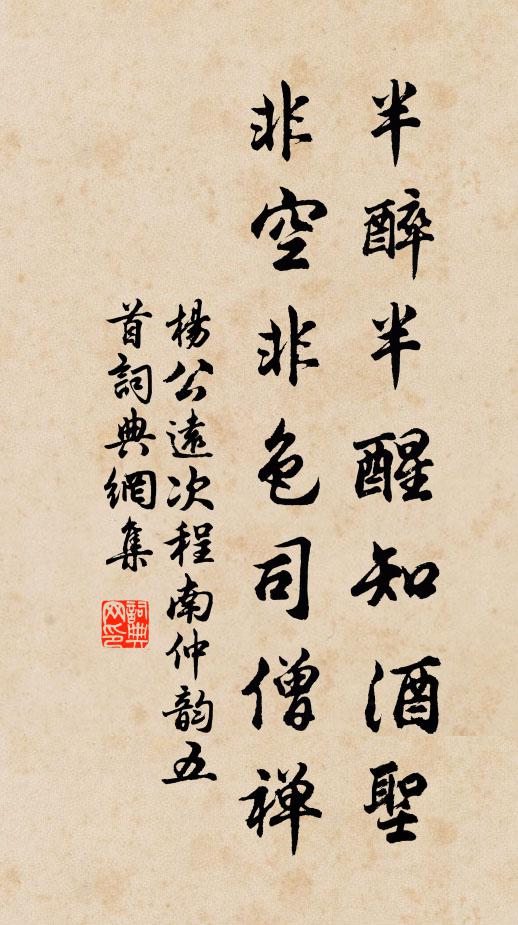 半醉半醒知酒聖
非空非色司僧禅
楊公遠次程南仲韵五
首詞典網集
詞典
网印